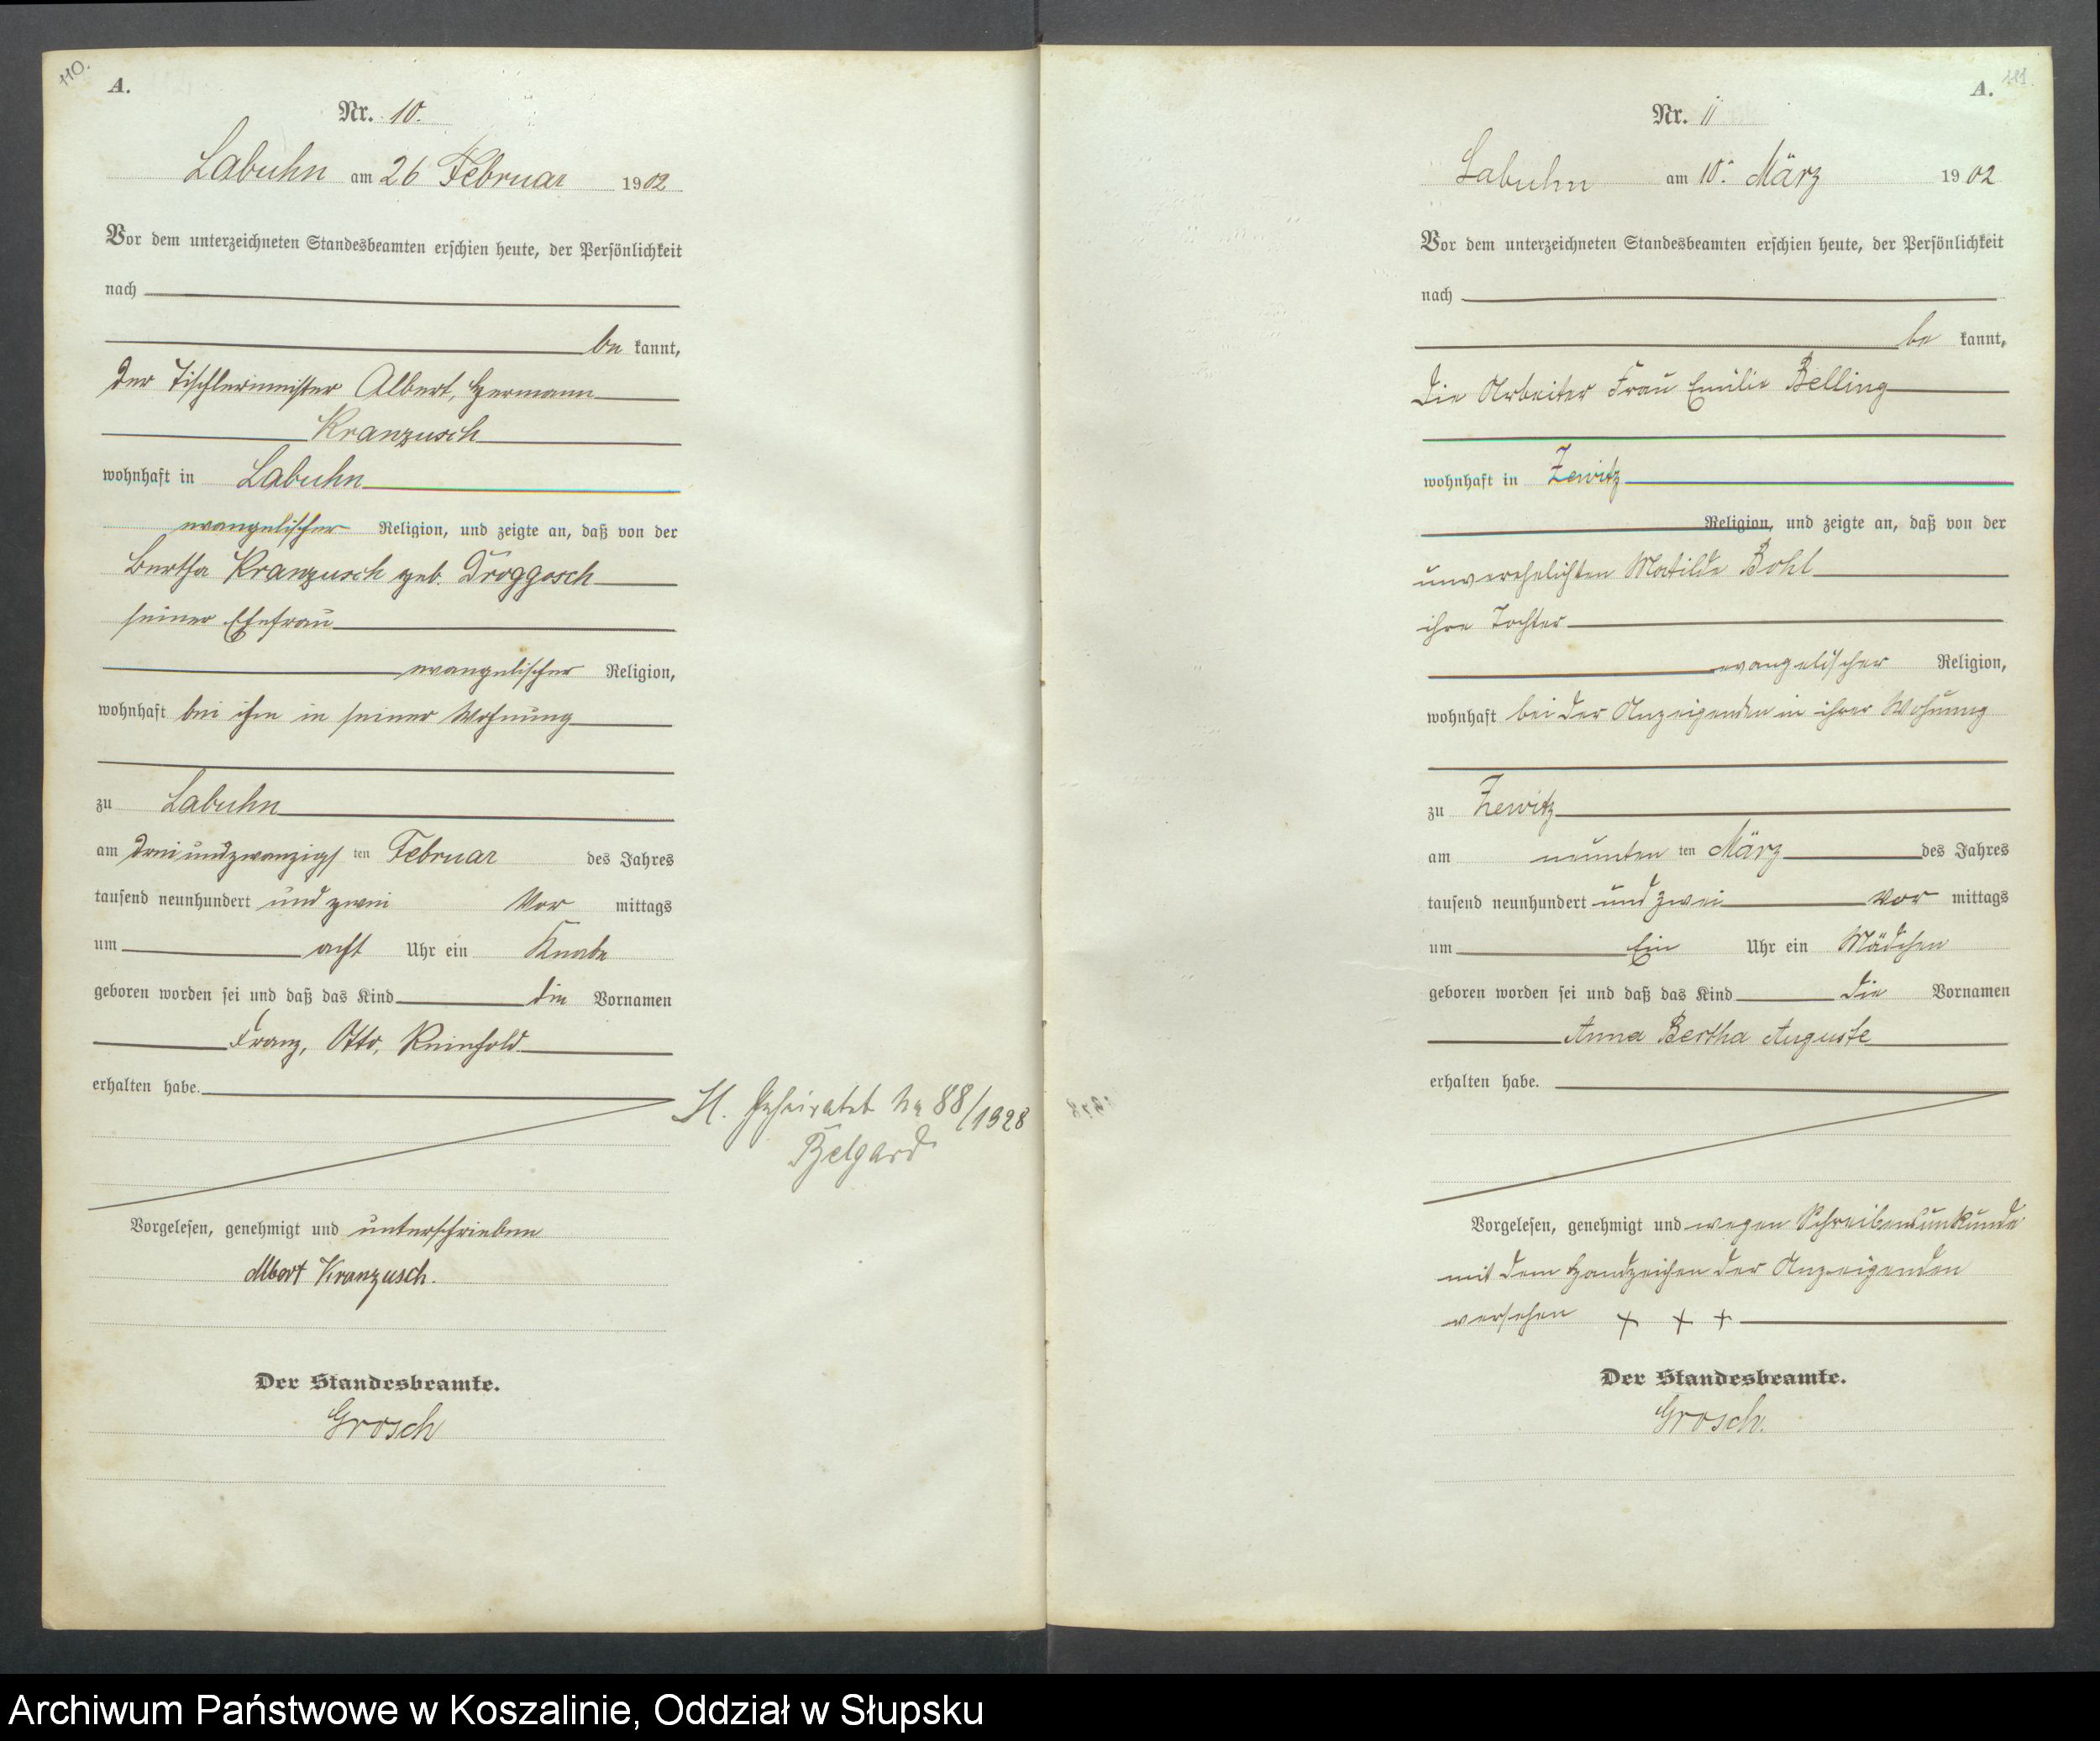 110.
A.
Nr. 10.
Labuhn am 26 Februar 1902
Vor dem unterzeichneten Standesbeamten erschien heute, der Persönlichkeit
nach
be kannt,
der Tischlermeister Albert, Hermann
Kranzusch
wohnhaft in Labuhn
evangelischer Religion, und zeigte an, daß von der
Bertha Kranzusch geb. Droggosch
seiner Ehefrau
evangelischer Religion,
wohnhaft bei ihm in seiner Wohnung
zu Labuhn
am dreiundzwanzigs ten Februar des Jahres
tausend neunhundert und zwei Vor mittags
um acht Uhr ein Knabe
geboren worden sei und daß das Kind die Vornamen
Franz, Otto, Reinhold
erhalten habe.
H. Geheiratet No 88/1928
Belgard
Vorgelesen, genehmigt und unterschrieben
Albert Kranzusch.
Der Standesbeamte.
Grosch
111.
A.
Nr. 11
Labuhn am 10. März 1902
Vor dem unterzeichneten Standesbeamten erschien heute, der Persönlichkeit
nach
be kannt,
die Arbeiter Frau Emilie Belling
wohnhaft in Zewitz
Religion, und zeigte an, daß von der
unverehelichten Matilde Bohl
ihre Tochter
evangelischer Religion,
wohnhaft bei der Anzeigenden in ihrer Wohnung
zu Zewitz
am neunten ten März des Jahres
tausend neunhundert und zwei Vor mittags
um Ein Uhr ein Mädchen
geboren worden sei und daß das Kind die Vornamen
Anna Bertha Auguste
erhalten habe.
Vorgelesen, genehmigt und wegen Schreibensunkunde
mit dem Handzeichen der Anzeigenden
versehen + + +
Der Standesbeamte.
Grosch.
Archiwum Państwowe w Koszalinie, Oddział w Słupsku